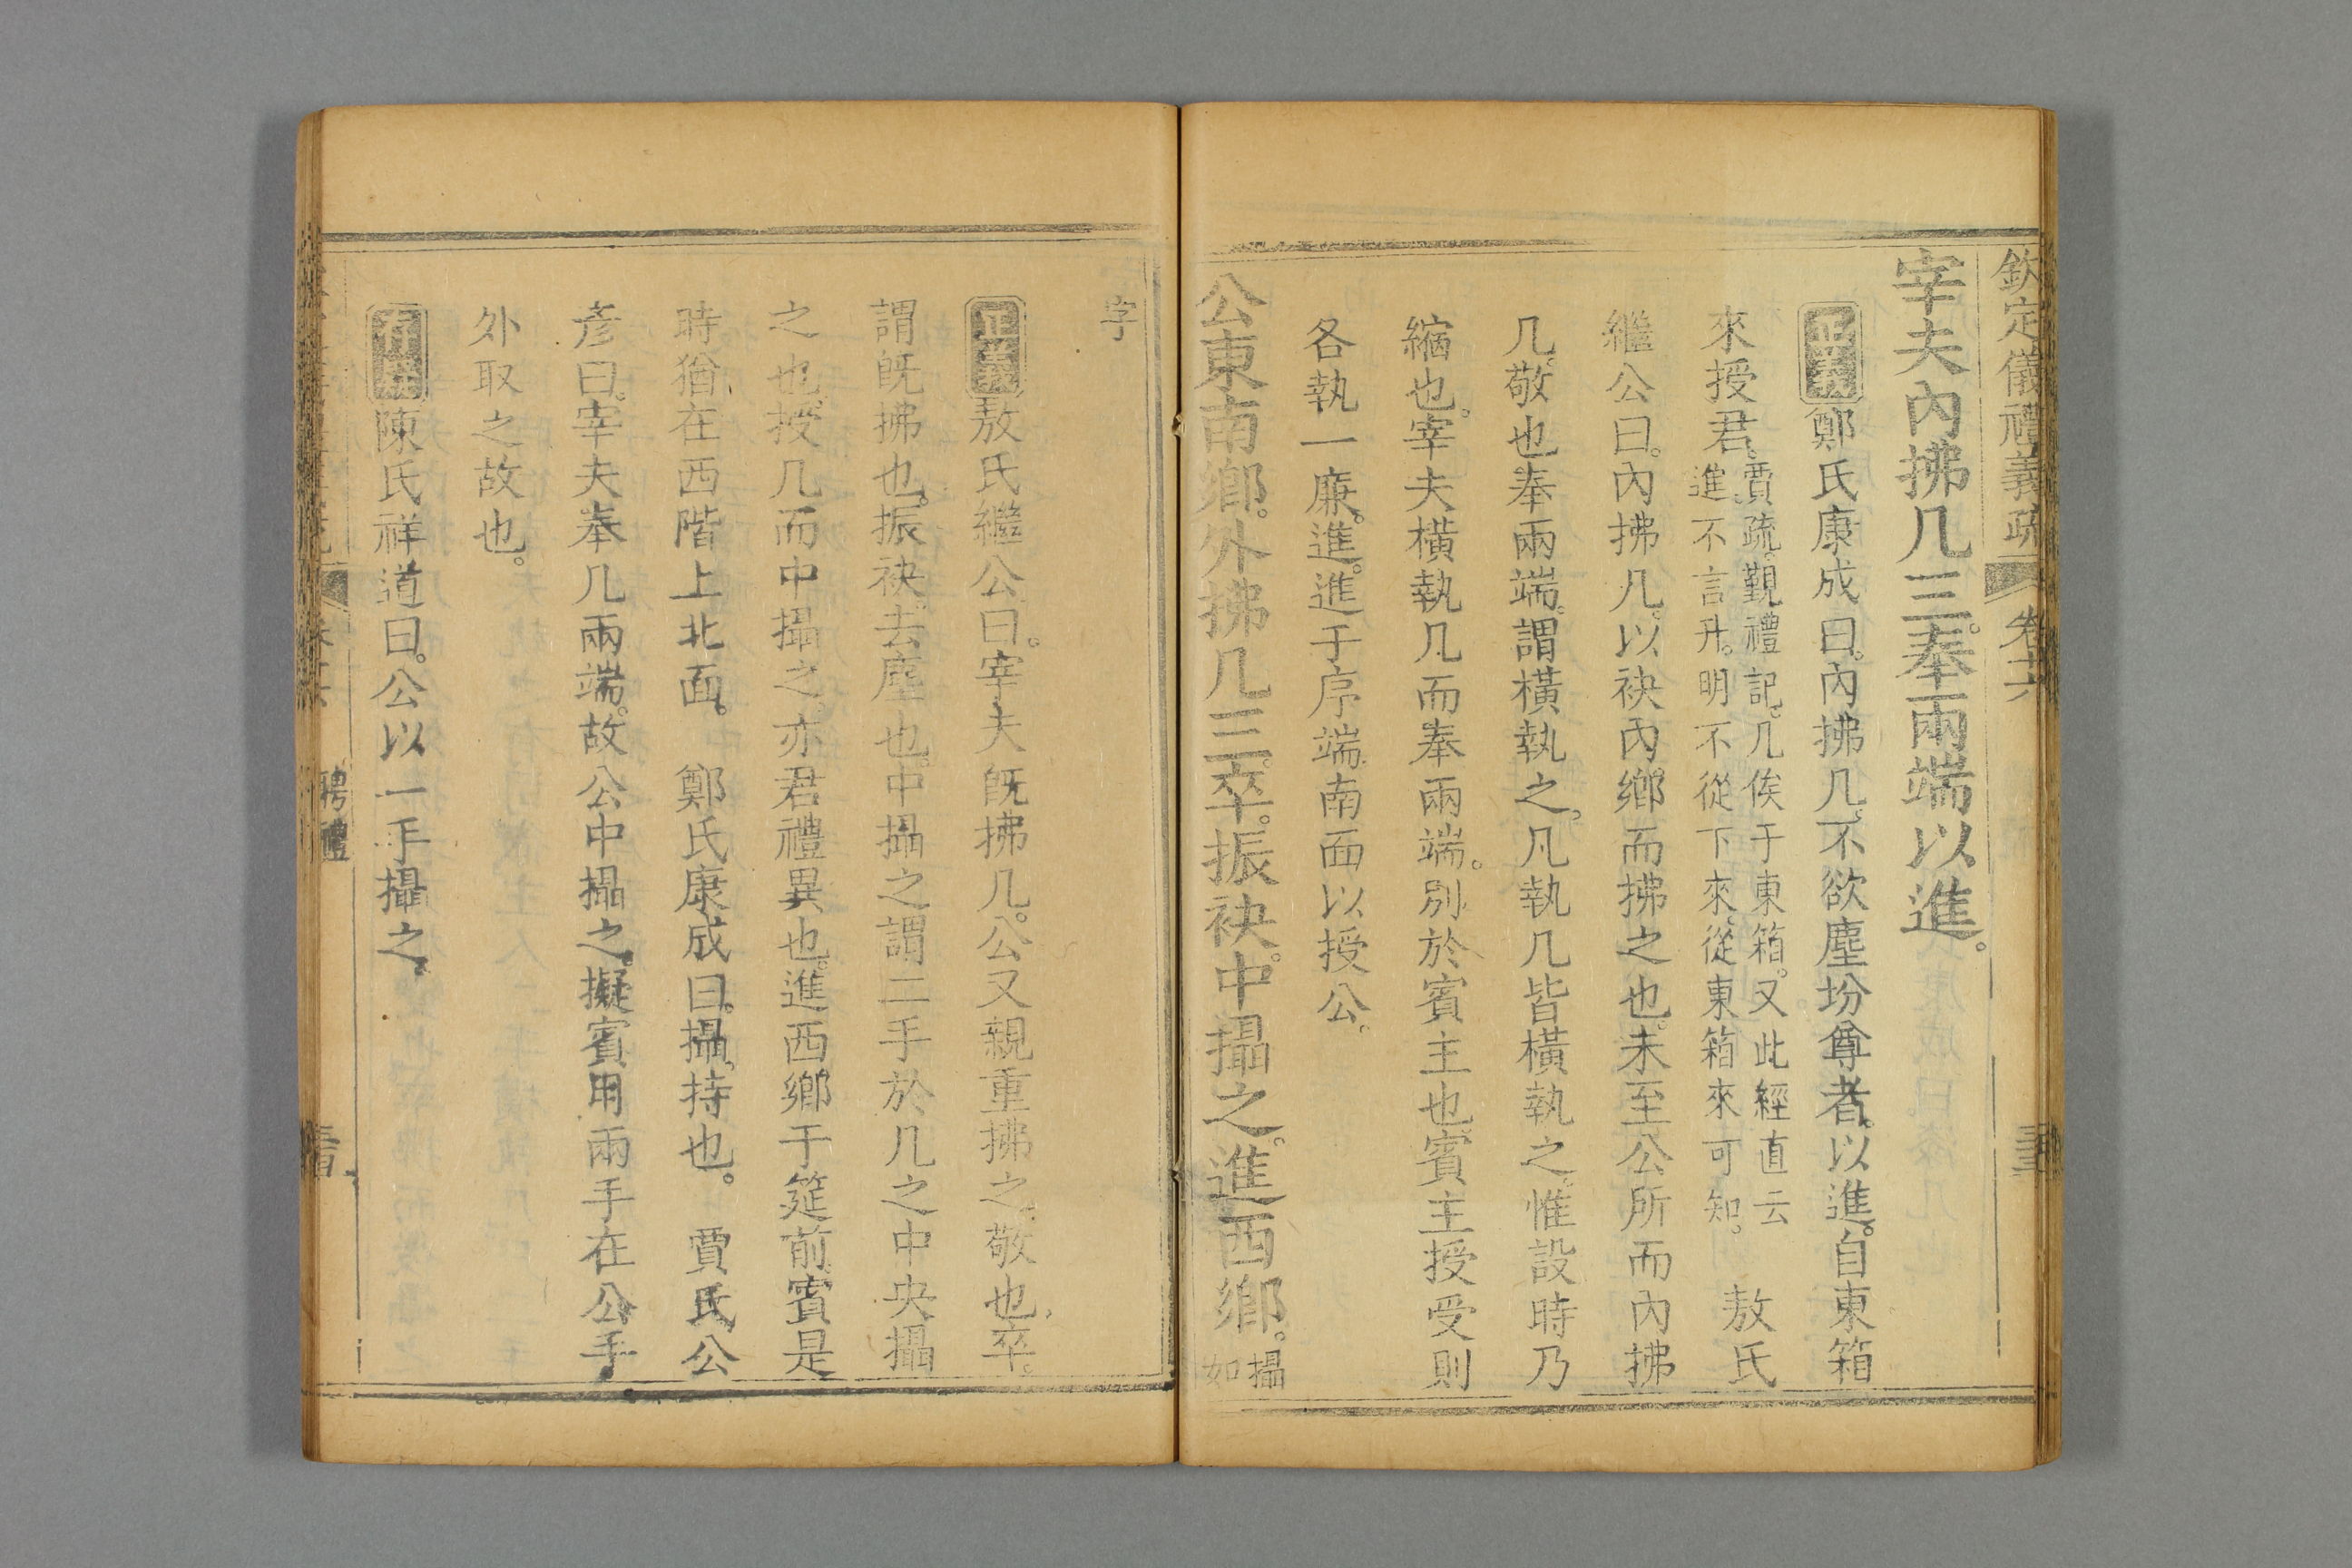 欽定儀禮義疏 卷十六
宰夫內拂几三。奉兩端以進。
正義鄭氏康成曰。內拂几。不欲塵坋尊者。以進。自東箱
來授君。賈疏。覲禮記。几俟于東箱。又此經直云進。不言升。明不從下來。從東箱來可知。 敖氏
繼公曰。內拂几。以袂內鄉而拂之也。未至公所而內拂
几。敬也。奉兩端。謂橫執之。凡執几皆橫執之。惟設時乃
縮也。宰夫橫執几而奉兩端。別於賓主也。賓主授受則
各執一廉。進。進于序端。南面以授公。
公東南鄉。外拂几三。卒。振袂。中攝之。進。西鄉。攝如
字
正義敖氏繼公曰。宰夫旣拂几。公又親重拂之。敬也。卒。
謂旣拂也。振袂。去塵也。中攝之。謂二手於几之中央攝
之也。授几而中攝之。亦君禮異也。進西鄉于筵前。賓是
時猶在西階上北面。 鄭氏康成曰。攝。持也。 賈氏公
彥曰。宰夫奉几兩端。故公中攝之。擬賓用兩手在公手
外取之故也。
陳氏祥道曰。公以一手攝之。
聘禮